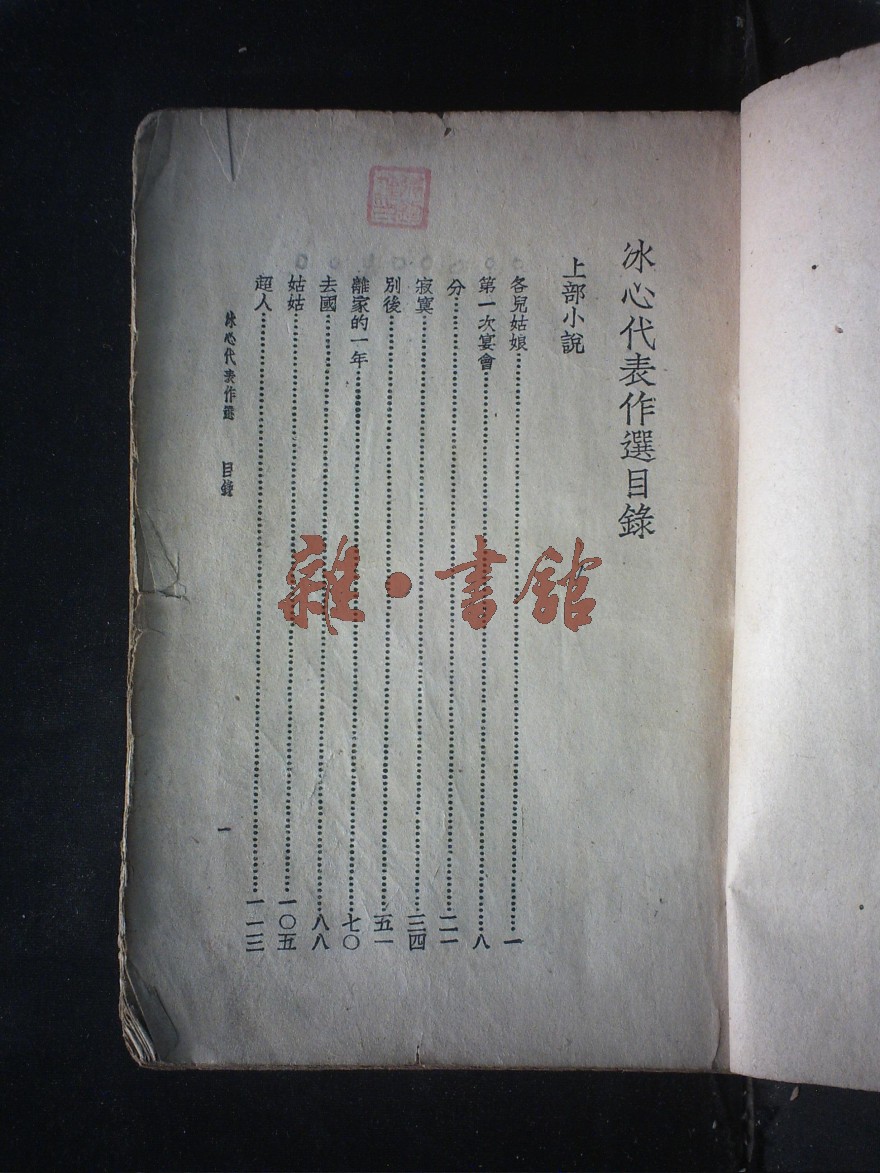 冰心代表作選目錄
上部小說
各兒姑娘……一
第一次宴會……八
分……二一
寂寞……三四
別後……五一
離家的一年……七〇
去國……八八
姑姑……一〇五
超人……一一三
冰心代表作選 目錄
一
雜·書館